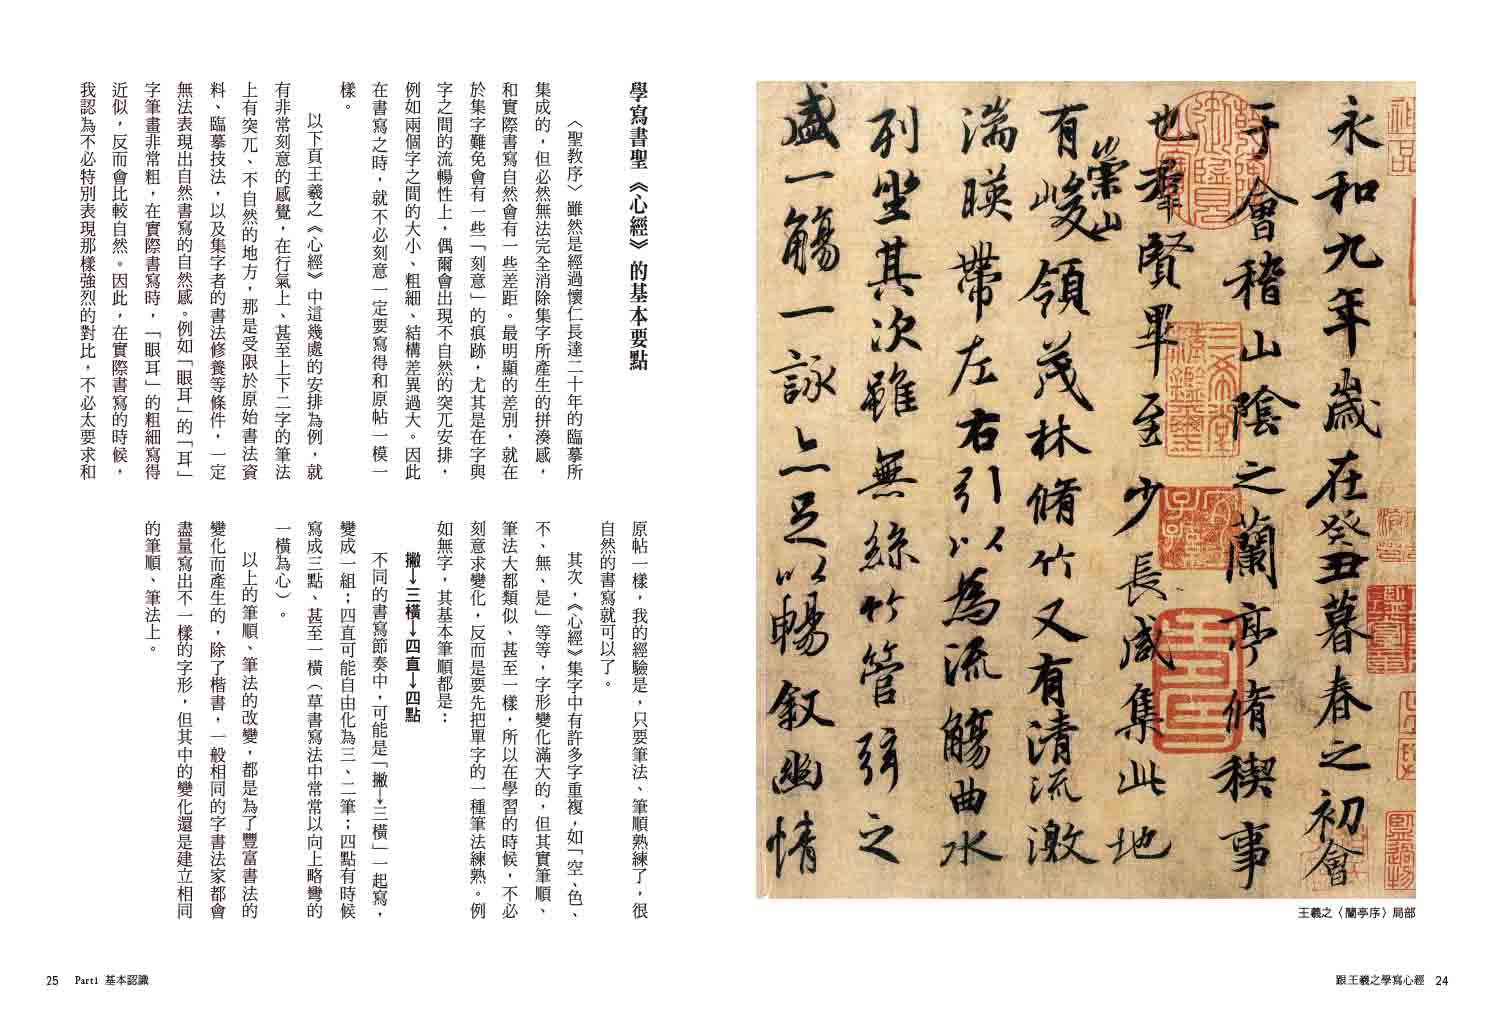 永和九年歲在癸丑暮春之初會
于會稽山陰之蘭亭脩稧事
也群賢畢至少長咸集此地
有崇山峻領茂林脩竹又有清流激
湍暎帶左右引以為流觴曲水
列坐其次雖無絲竹管弦之
盛一觴一詠亦足以暢敘幽情
王羲之〈蘭亭序〉局部
跟王羲之學寫心經 24
學寫書聖《心經》的基本要點
〈聖教序〉雖然是經過懷仁長達二十年的臨摹所
集成的，但必然無法完全消除集字所產生的拼湊感，
和實際書寫自然會有一些差距。最明顯的差別，就在
於集字難免會有一些「刻意」的痕跡，尤其是在字與
字之間的流暢性上，偶爾會出現不自然的突兀安排，
例如兩個字之間的大小、粗細、結構差異過大。因此
在書寫之時，就不必刻意一定要寫得和原帖一模一
樣。
以下頁王羲之《心經》中這幾處的安排為例，就
有非常刻意的感覺，在行氣上、甚至上下二字的筆法
上有突兀、不自然的地方，那是受限於原始書法資
料、臨摹技法，以及集字者的書法修養等條件，一定
無法表現出自然書寫的自然感。例如「眼耳」的「耳」
字筆畫非常粗，在實際書寫時，「眼耳」的粗細寫得
近似，反而會比較自然。因此，在實際書寫的時候，
我認為不必特別表現那樣強烈的對比，不必太要求和
原帖一樣，我的經驗是，只要筆法、筆順熟練了，很
自然的書寫就可以了。
其次，《心經》集字中有許多字重複，如「空、色、
不、無、是」等等，字形變化滿大的，但其實筆順、
筆法大都類似、甚至一樣，所以在學習的時候，不必
刻意求變化，反而是要先把單字的一種筆法練熟。例
如無字，其基本筆順都是：
撇→三橫→四直→四點
不同的書寫節奏中，可能是「撇→三橫」一起寫，
變成一組；四直可能自由化為三、二筆；四點有時候
寫成三點、甚至一橫（草書寫法中常常以向上略彎的
一橫為心）。
以上的筆順、筆法的改變，都是為了豐富書法的
變化而產生的，除了楷書，一般相同的字書法家都會
盡量寫出不一樣的字形，但其中的變化還是建立相同
的筆順、筆法上。
25 Part1 基本認識